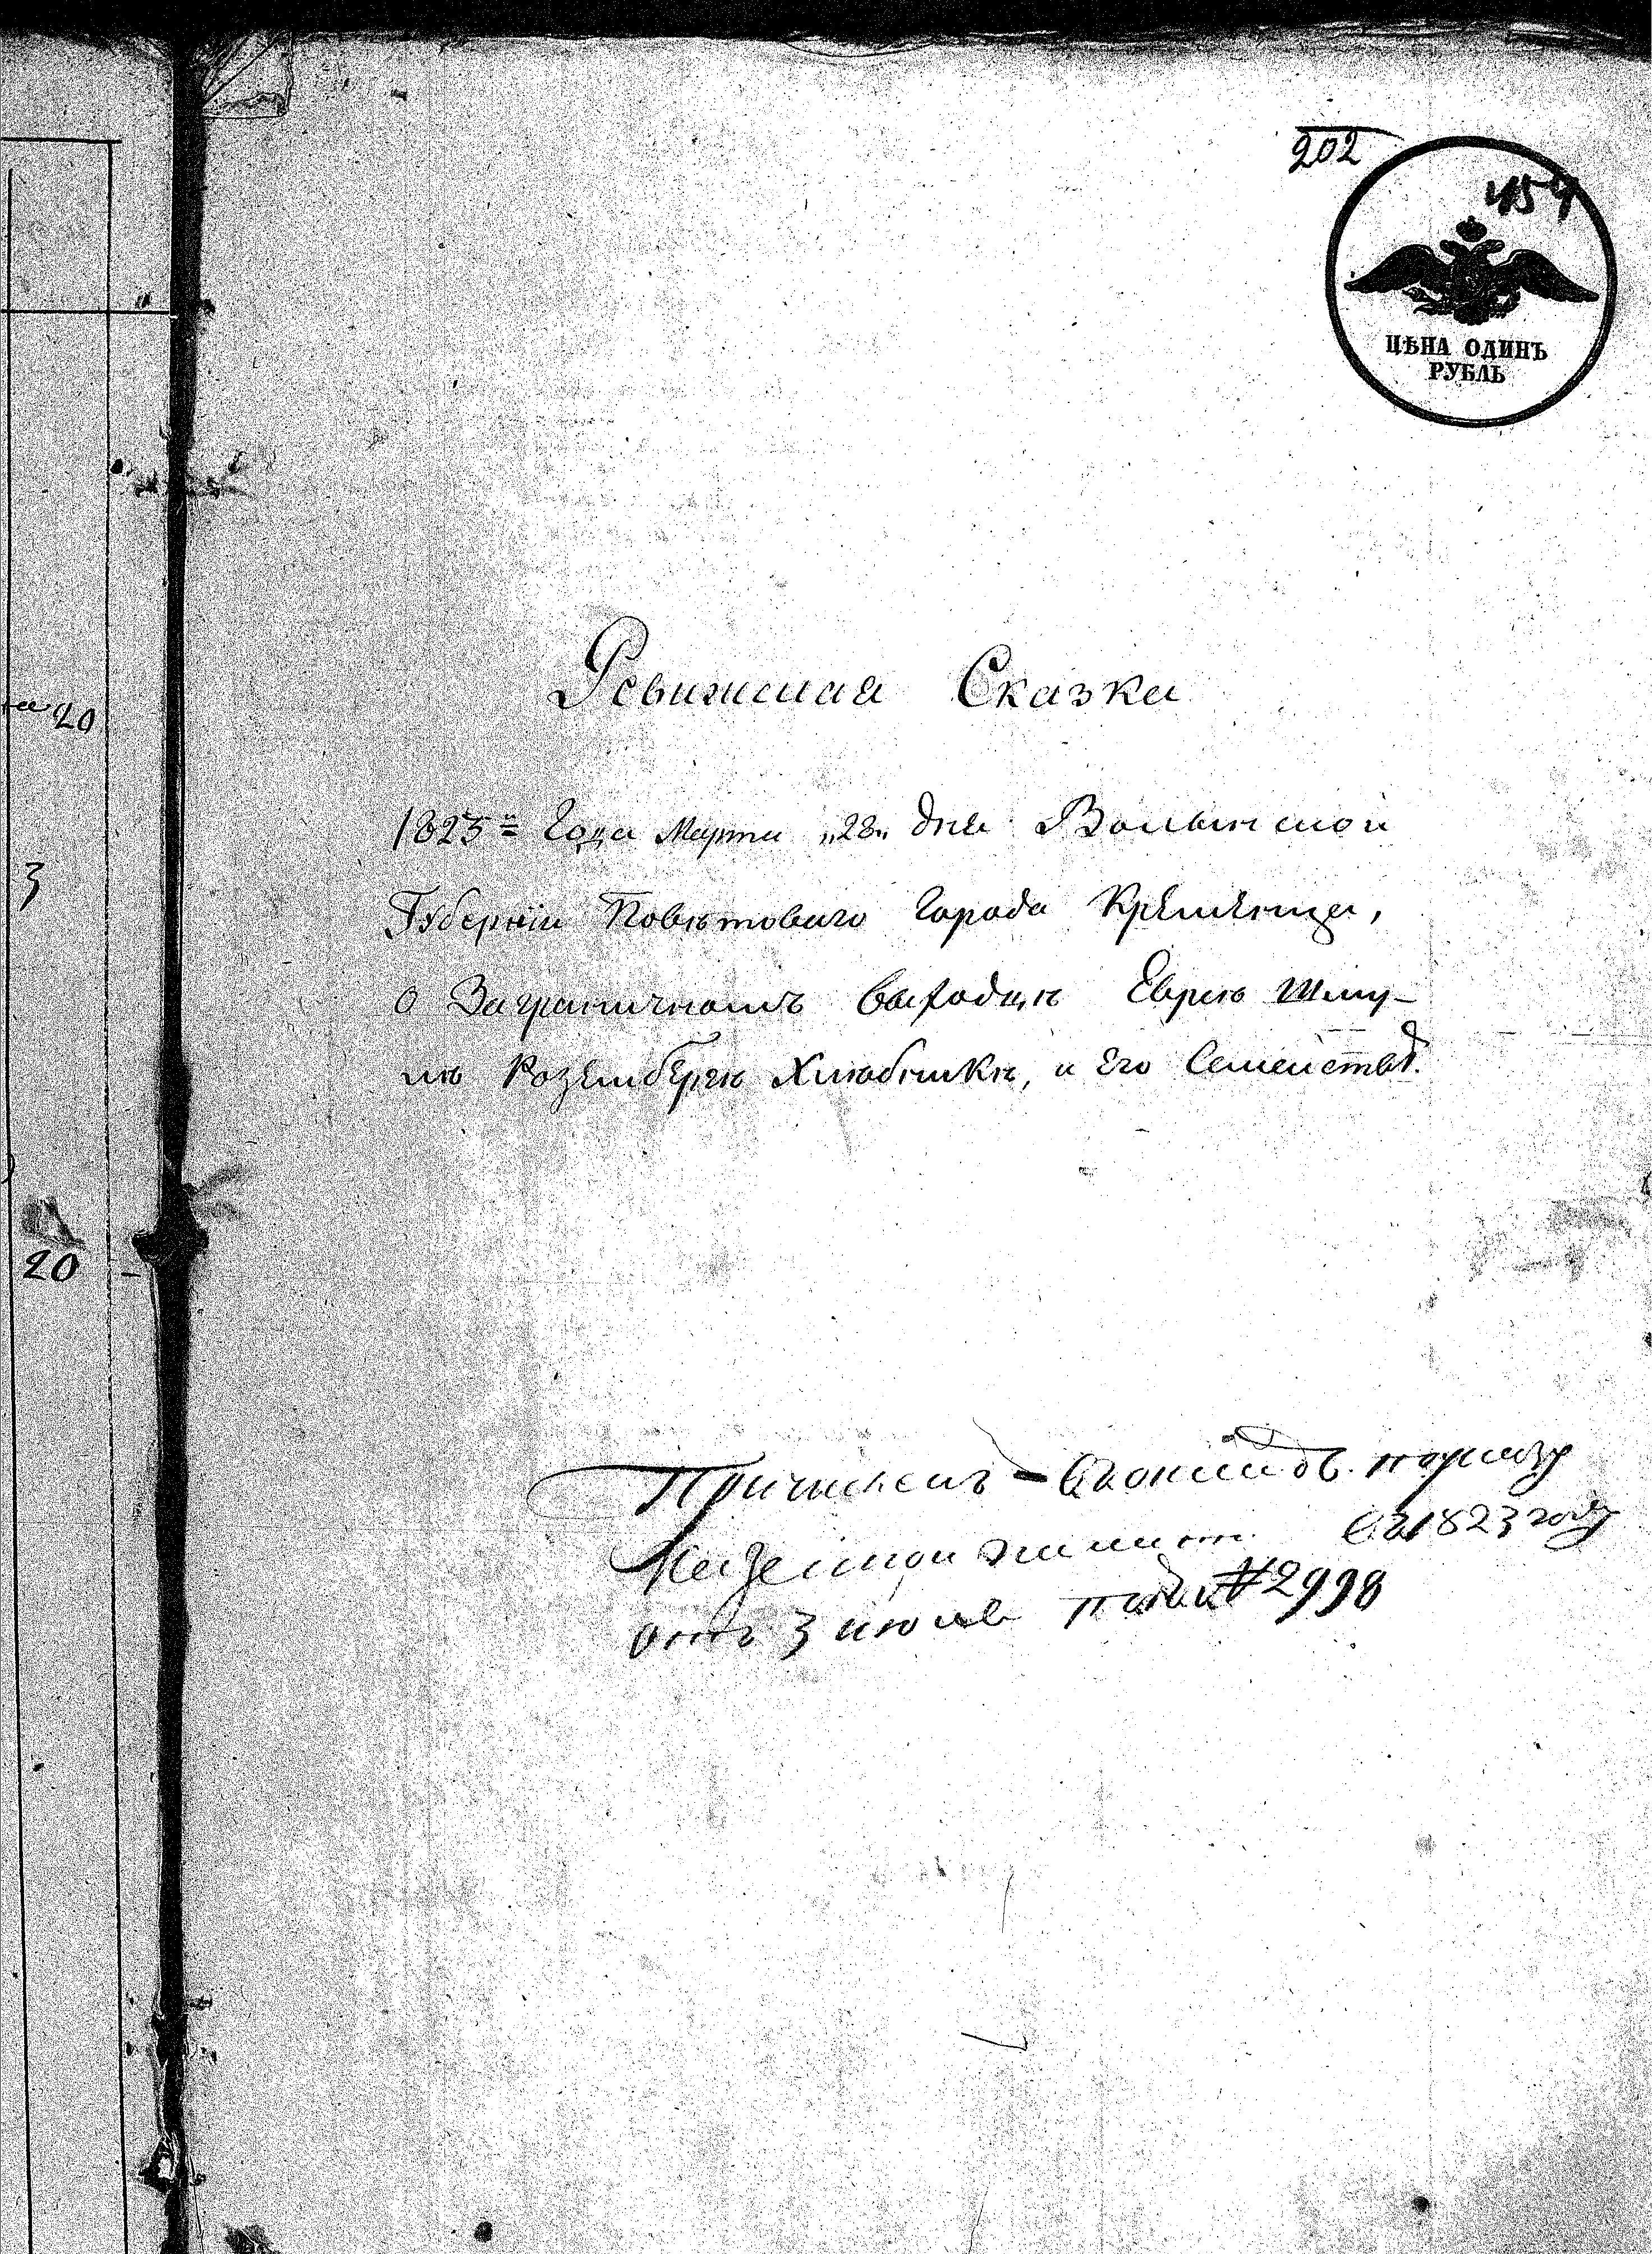 202
457
ЦѢНА ОДИНЪ
РУБЛЬ
Ревижская Сказка
20
1825 = Года Марта „28„ дня Волынской
3
Губерніи Повѣтоваго Города Кременца,
О Заграничномъ Выходцѣ Еврею Шму-
лѣ Розенбергѣ Хлюбникѣ, и Его Семействѣ.
20
Причисленъ
1823 году
отъ 3 июля №2998